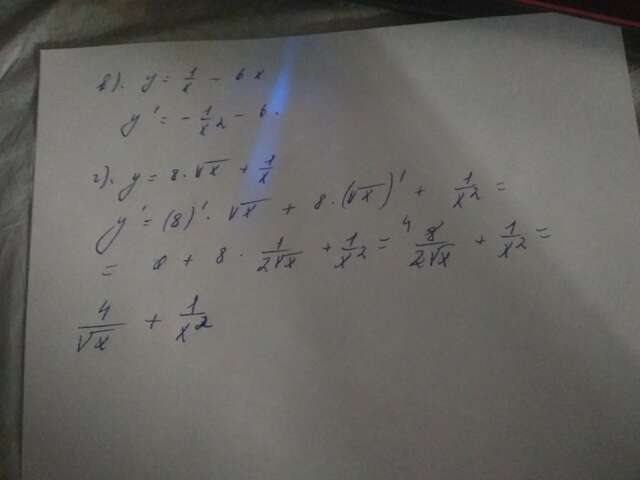 в). y = 1/x - 6x
y' = - 1/x2 - 6.
г). y = 8·√x + 1/x
y' = (8)'·√x + 8·(√x)' + 1/x2 =
= 0 + 8 · 1/2√x + 1/x2 = 4 8/2√x + 1/x2 =
4/√x + 1/x2